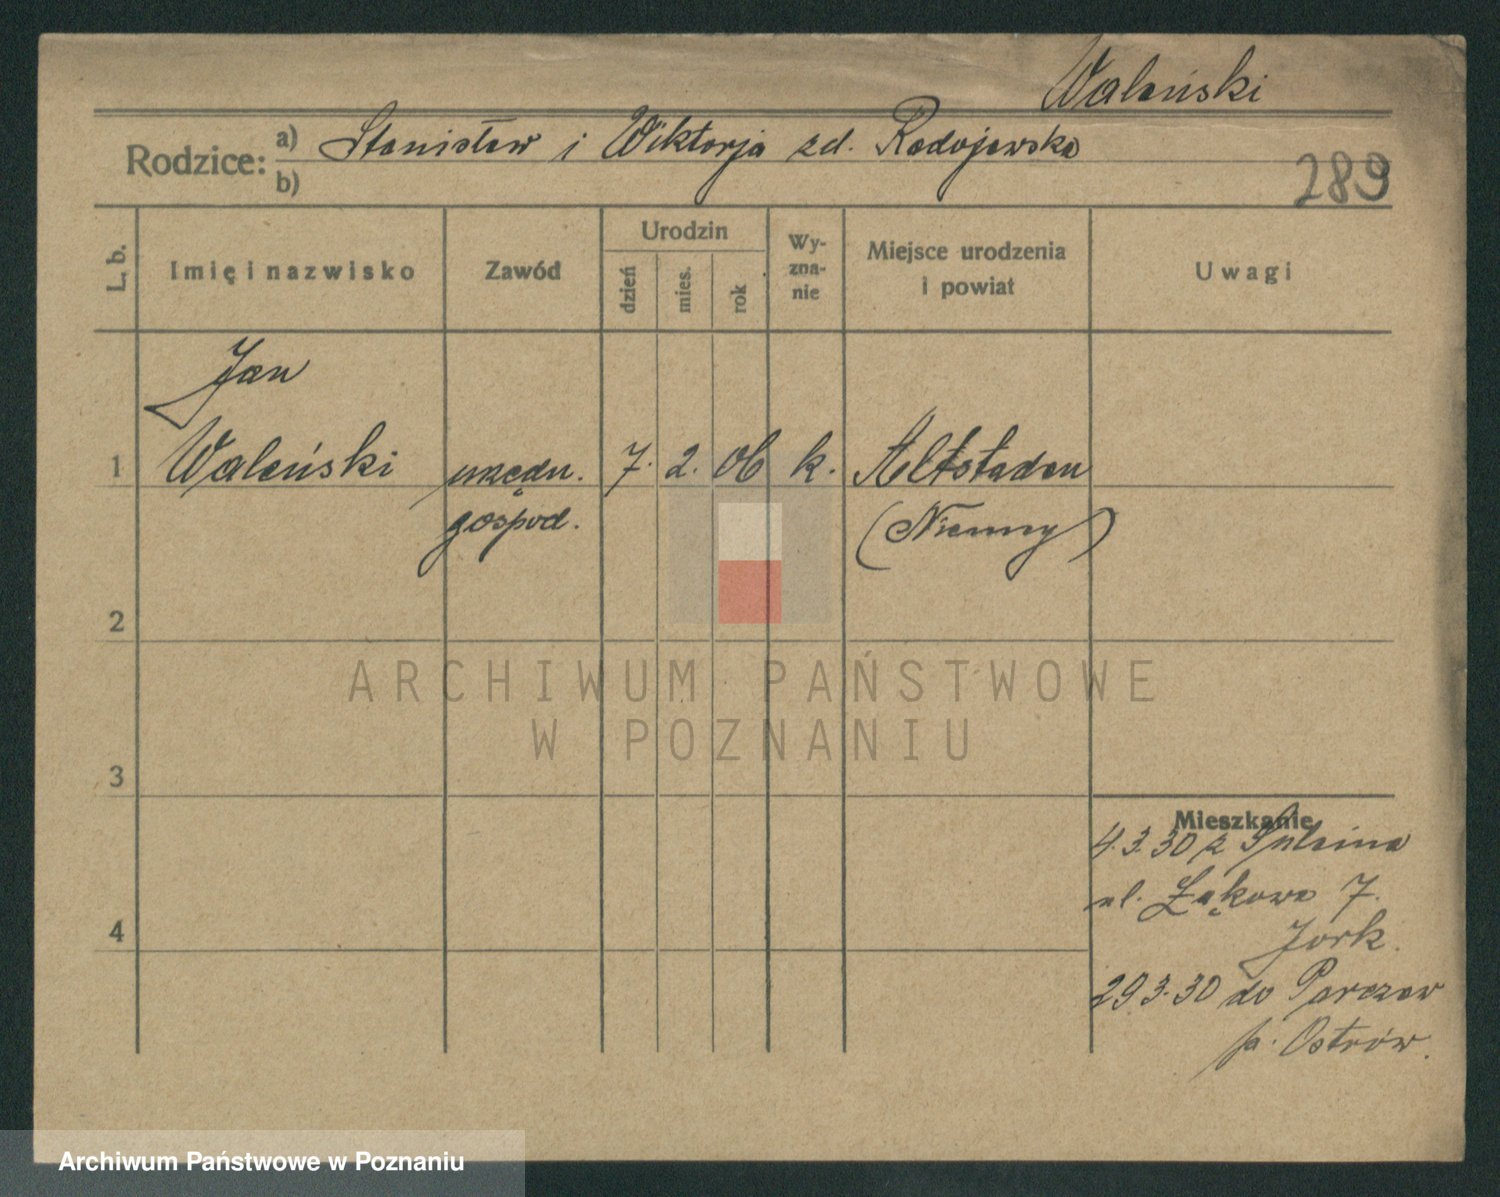 Waleński
Rodzice: a) Stanisław i Wiktorja zd. Radojewska
b)
289
L. b.
Imię i nazwisko
Zawód
Urodzin
dzień
mies.
rok
Wy-
zna-
nie
Miejsce urodzenia
i powiat
Uwagi
Jan
1 Waleński urzędn. 7. 2. 06 k. Altstaden
gospod. (Niemcy)
2
ARCHIWUM PAŃSTWOWE
W POZNANIU
3
Mieszkanie
4.3.30 z
ul. Łąkowa 7.
Jork.
4
29.3.30 do Parczew
p. Ostrów.
Archiwum Państwowe w Poznaniu